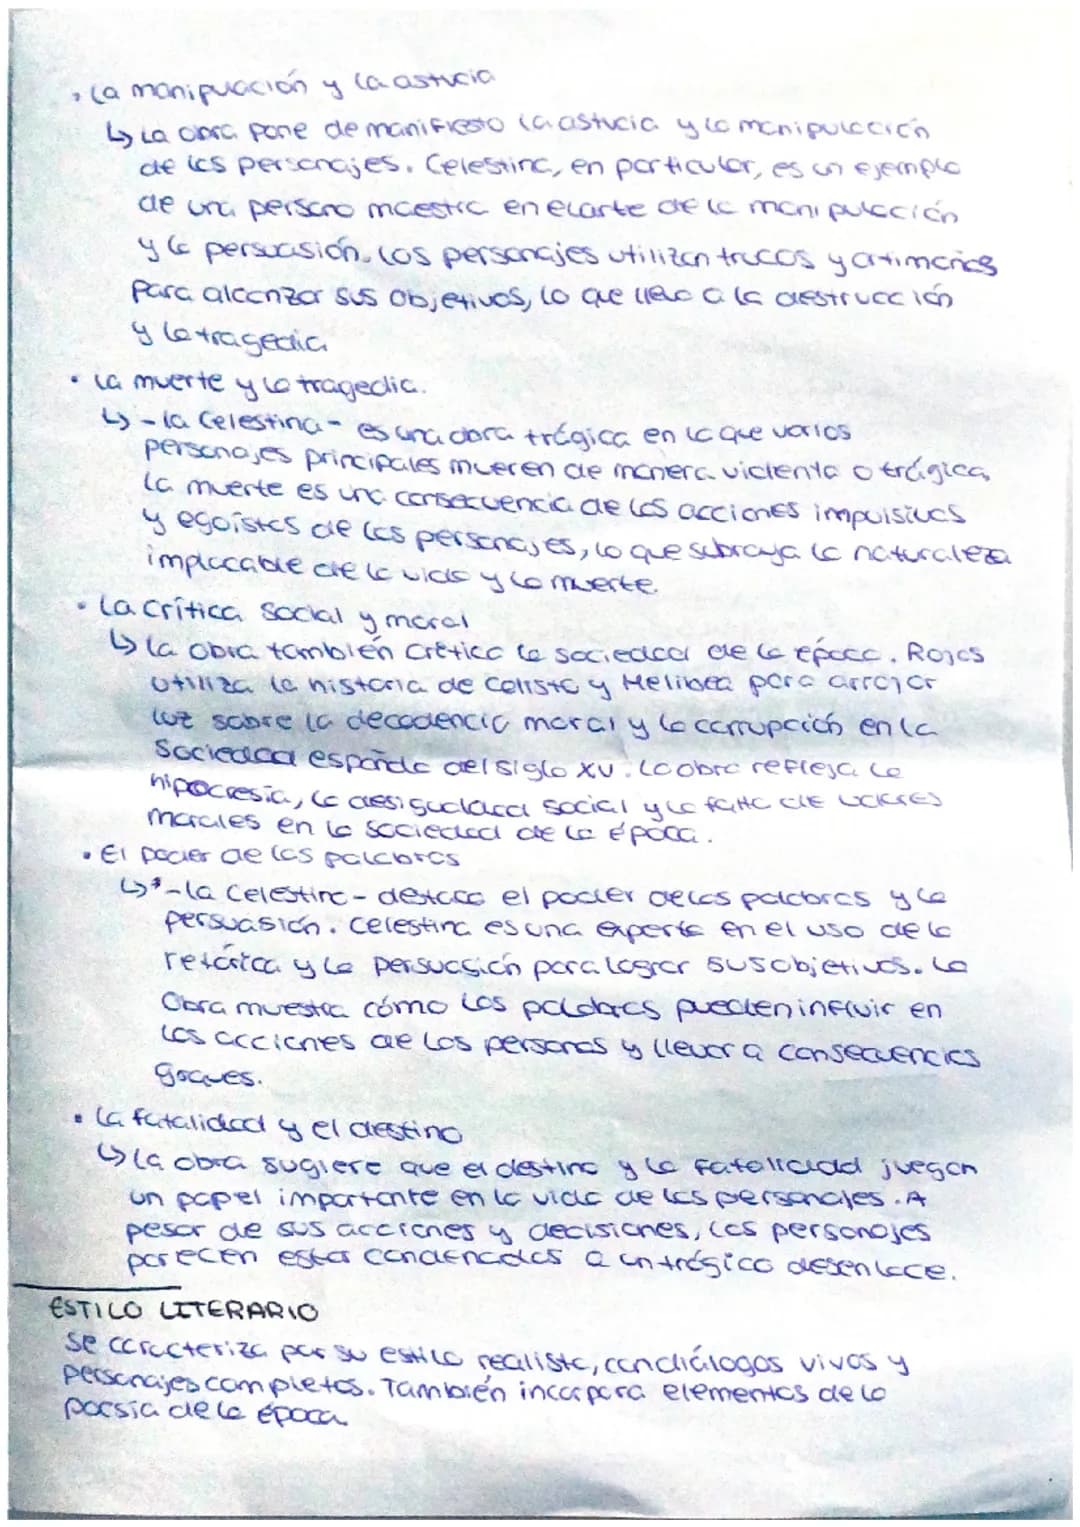 · La manipuación y la astucia
↳ La obra pone de manifiesto la astucia y la manipulación
de los personajes. Celestina, en particular, es un ejemplo
de una persona maestra en el arte de la manipulación
y la persuasión. Los personajes utilizan trucos y artimañas
para alcanzar sus objetivos, lo que lleva a la destrucción
y la tragedia
• La muerte y la tragedia.
↳ - la Celestina - es una obra trágica en la que varios
personajes principales mueren de manera violenta o trágica,
la muerte es una consecuencia de las acciones impulsivas
y egoístas de los personajes, lo que subraya la naturaleza
implacable de la vida y la muerte.
• La crítica social y moral
↳ la obra también crítica la sociedad de la época. Rojas
utiliza la historia de Calisto y Melibea para arrojar
luz sobre la decadencia moral y la corrupción en la
sociedad española del siglo XV. La obra refleja la
hipocresía, la desigualdad social y la falta de valores
morales en la sociedad de la época.
• El poder de las palabras
↳ - la Celestina - destaca el poder de las palabras y la
persuasión. Celestina es una experta en el uso de la
retórica y la persuasión para lograr sus objetivos. La
Obra muestra cómo las palabras pueden influir en
las acciones de las personas y llevar a consecuencias
graves.
• La fatalidad y el destino
↳ la obra sugiere que el destino y la fatalidad juegan
un papel importante en la vida de los personajes. A
pesar de sus acciones y decisiones, los personajes
parecen estar condenados a un trágico desenlace.
ESTILO LITERARIO
Se caracteriza por su estilo realista, con diálogos vivos y
personajes completos. También incorpora elementos de la
poesía de la época